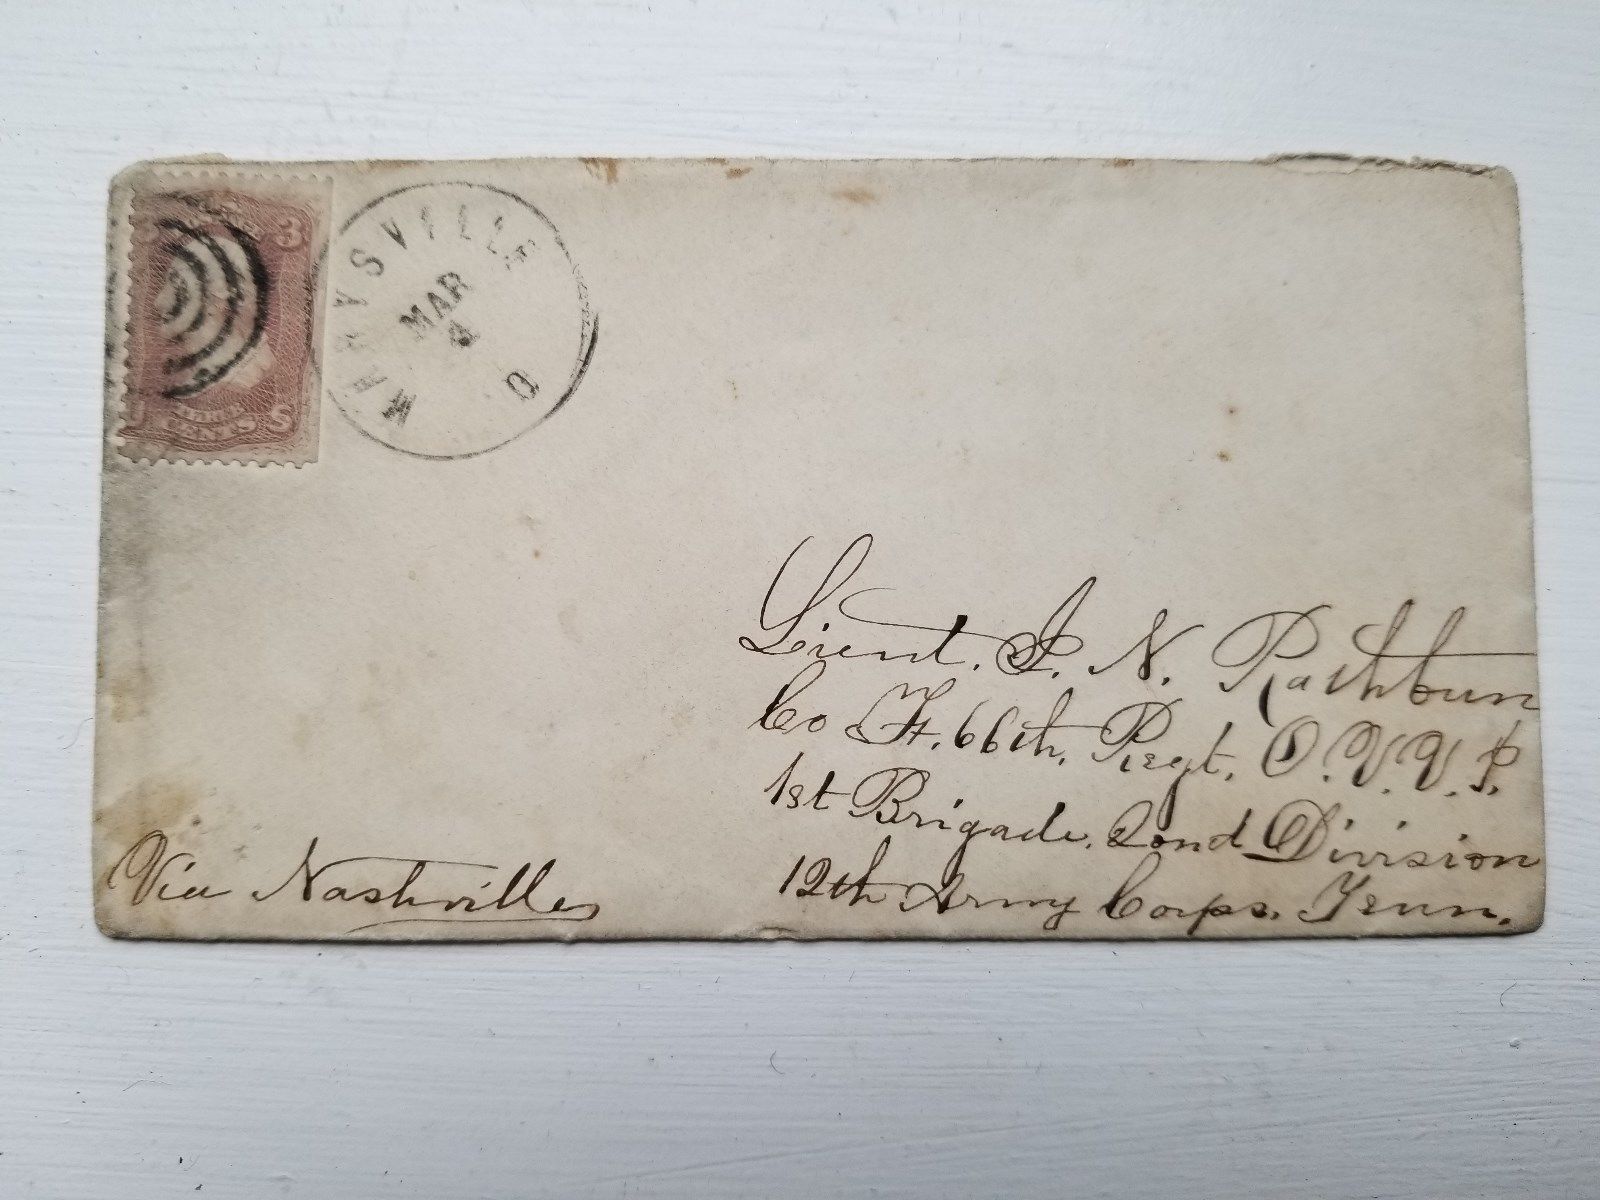 3
CENTS
MARYSVILLE
MAR
4
O
Lieut. J. N. Rathbun
Co F. 66th, Regt. O. V. V. I.
1st Brigade. 2ond Division
12th Army Corps. Tenn.
Via Nashville